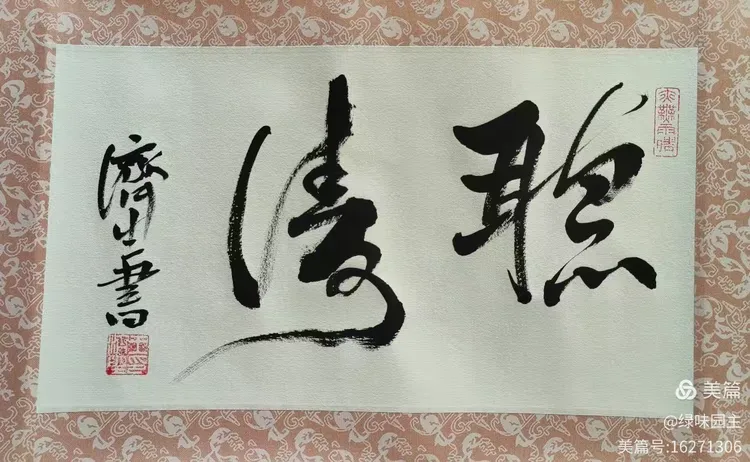 聽濤
濟生書
美篇
@绿味园主
美篇号:16271306